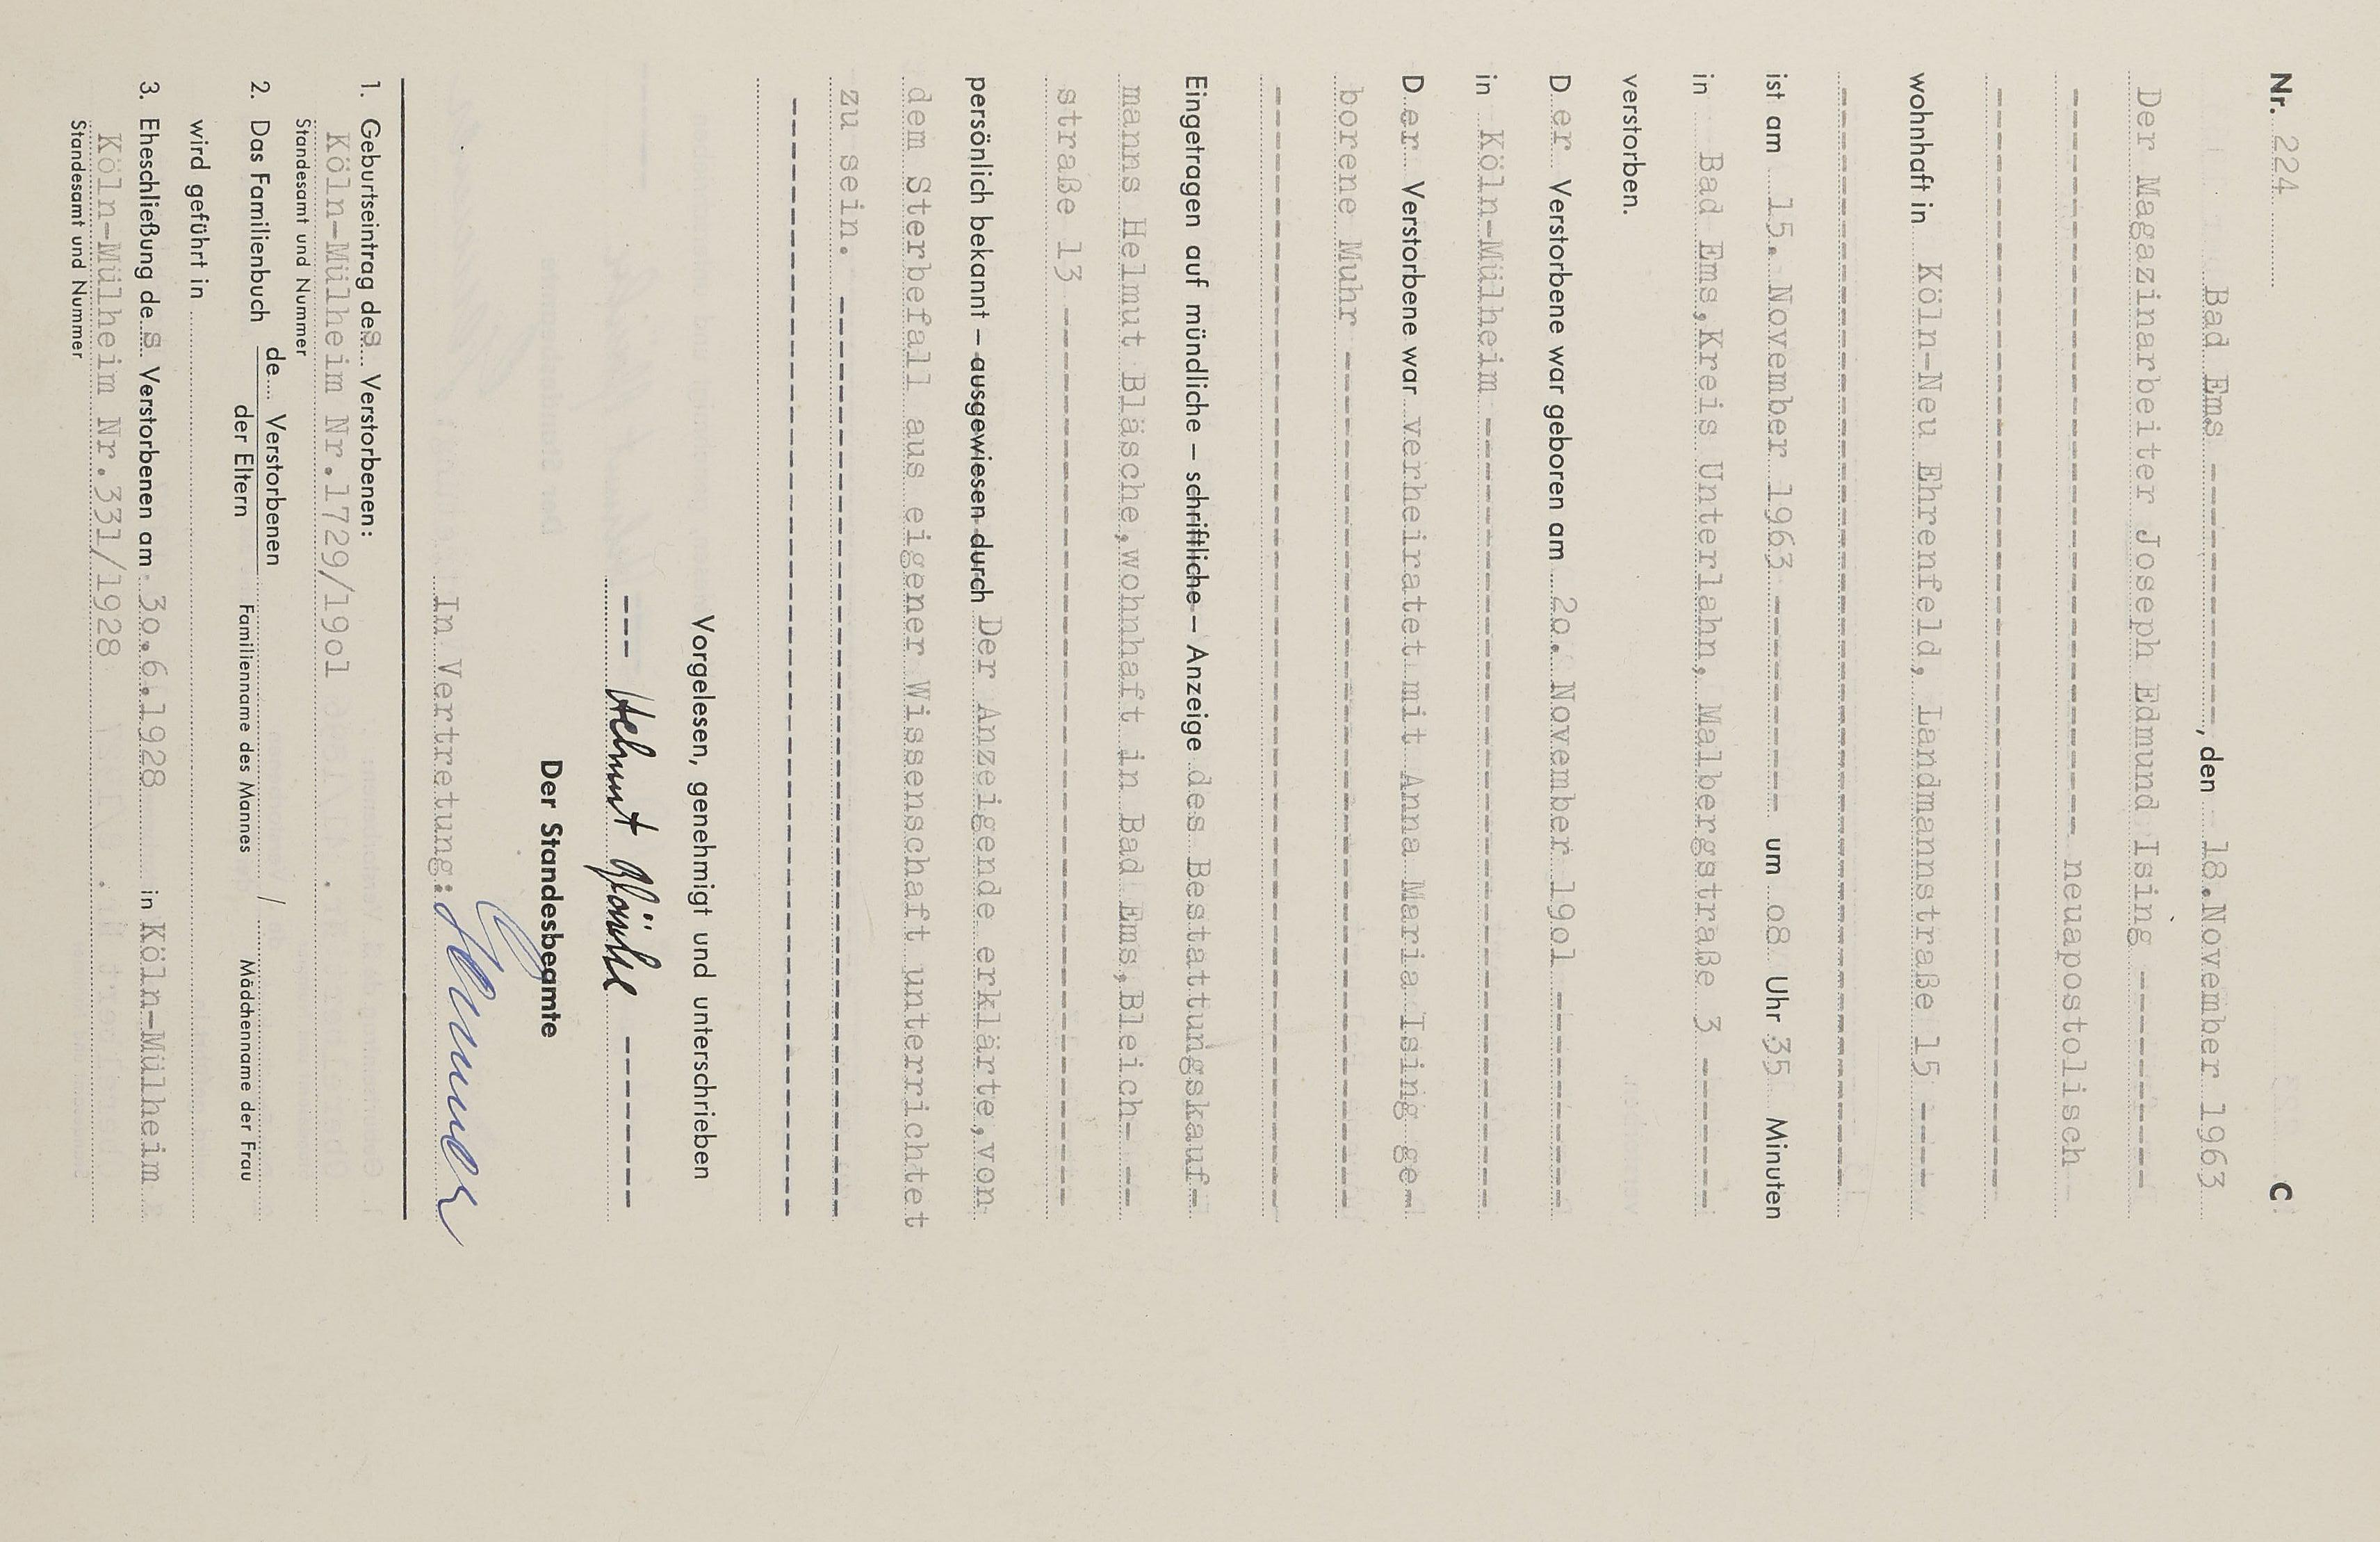 Nr. 224 C
Bad Ems ----------------, den 18.November 1963
Der Magazinarbeiter Joseph Edmund Ising --------
---------------------------- neuapostolisch
------------------------------------------
wohnhaft in Köln-Neu Ehrenfeld, Landmannstraße 15 ----
------------------------------------------
ist am 15. November 1963 ------------ um o8 Uhr 35 Minuten
in Bad Ems,Kreis Unterlahn, Malbergstraße 3 -------
verstorben.
D er Verstorbene war geboren am 2o. November 19o1 ----------
in Köln-Mülheim ------------------------------
D er Verstorbene war verheiratet mit Anna Maria Ising ge-
borene Muhr --------------------------------
------------------------------------------
Eingetragen auf mündliche – schriftliche – Anzeige des Bestattungskauf-
manns Helmut Bläsche,wohnhaft in Bad Ems,Bleich- --
straße 13 ----------------------------------
persönlich bekannt – ausgewiesen durch Der Anzeigende erklärte,von
dem Sterbefall aus eigener Wissenschaft unterrichtet
zu sein. -----------------------------------
------------------------------------------
Vorgelesen, genehmigt und unterschrieben
--- Helmut Bläsche --------
Der Standesbeamte
In Vertretung:
1. Geburtseintrag des Verstorbenen:
Köln-Mülheim Nr.1729/19o1
Standesamt und Nummer
2. Das Familienbuch de... Verstorbenen / 
der Eltern Familienname des Mannes Mädchenname der Frau
wird geführt in
3. Eheschließung de s Verstorbenen am 3o.6.1928 in Köln-Mülheim
Köln-Mülheim Nr.331/1928
Standesamt und Nummer